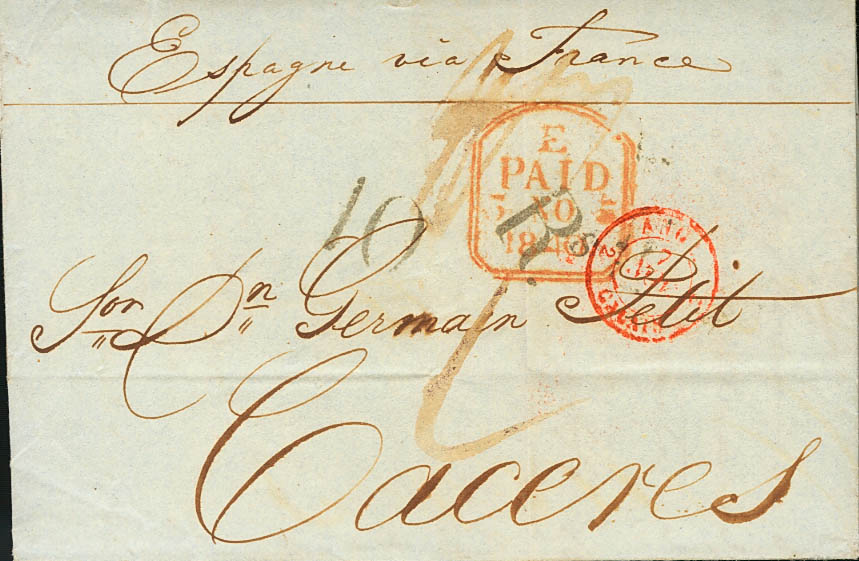 Espagne via France
E
PAID
NO
184
10 Rs.
ANG
2 CALAIS 2
Sor Dn German Petit
Caceres